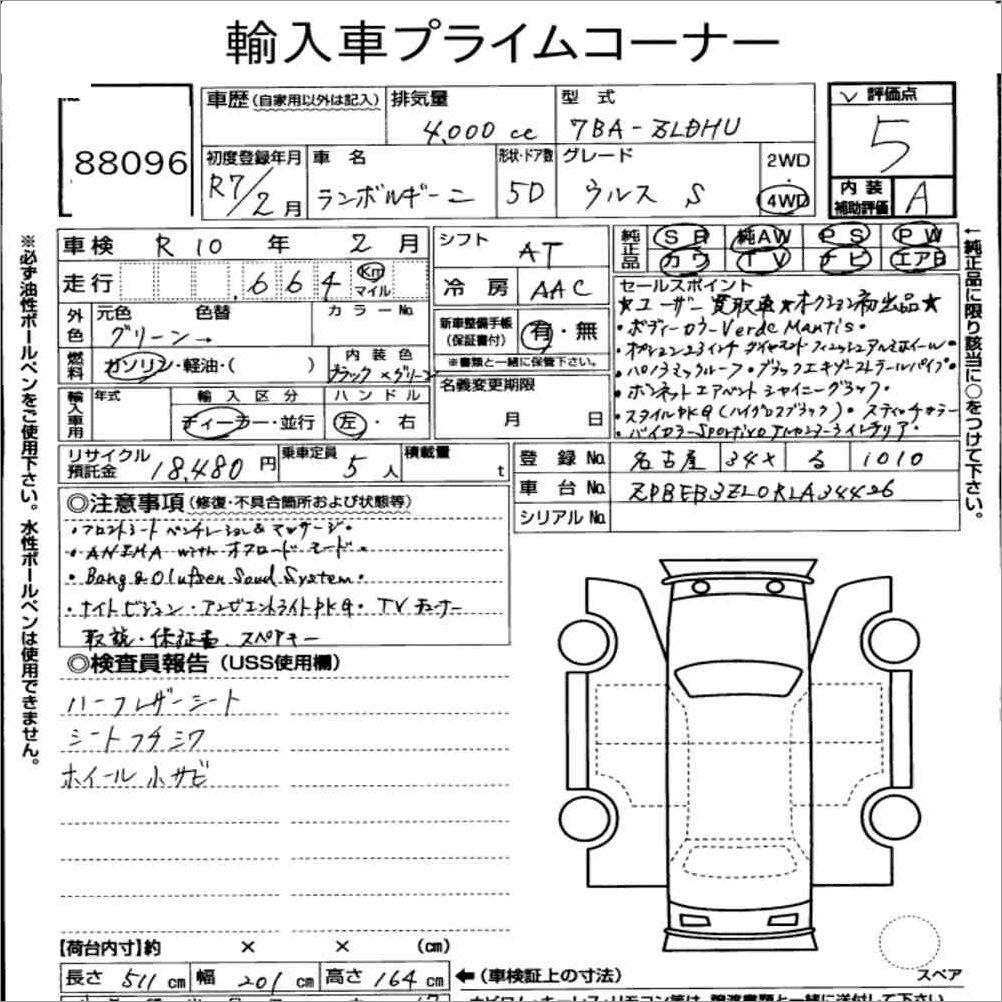 輸入車プライムコーナー
88096
車歴 (自家用以外は記入)
排気量 4,000 cc
型式 7BA-ZLDHU
評価点 5
初度登録年月 R7/2月
車名 ランボルギーニ
形状・ドア数 5D
グレード ウルス S
2WD ・ 4WD
内装補助評価 A
車検 R10年 2月
走行 664 Km マイル
シフト AT
冷房 AAC
純正品 SR 純AW PS PW
カワ TV ナビ エアB
外色 元色 グリーン→ 色替 カラーNo.
燃料 ガソリン・軽油・( )
内装色 ブラック×グリーン
新車整備手帳(保証書付) 有・無
※書類と一緒に保管下さい。
名義変更期限 月 日
セールスポイント
★ユーザー買取車★オクション初出品★
・ボディーカラーVerde Mantis・
・オプション23インチ ダイヤモンドフィニッシュアルミホイール・
・パノラミックルーフ・ブラックエキゾーストテールパイプ・
・ボンネットエアベントシャイニーブラック・
・スタイルPKG(ハイグロスブラック)・スティッチカラー
・バイカラーSportivoアルカンターラインテリア・
輸入車用 年式 輸入区分 ディーラー・並行 ハンドル 左・右
リサイクル預託金 18,480円 乗車定員 5人 積載量 t
登録No. 名古屋 34× る 1010
車台No. ZPBEB3ZL0RLA34426
シリアルNo.
◎注意事項(修復・不具合箇所および状態等)
・フロントシートベンチレーション&マッサージ・
・ANIMA with オフロードモード・
・Bang & Olufsen Sound System・
・ナイトビジョン・アンビエントライトPKG・TVチューナー
取説・保証書、スペアキー
◎検査員報告(USS使用欄)
ハーフレザーシート
シートフチシワ
ホイール小サビ
【荷台内寸】約 × × (cm)
長さ 511 cm 幅 201 cm 高さ 164 cm
←(車検証上の寸法)
スペア
※必ず油性ボールペンをご使用下さい。水性ボールペンは使用できません。
←純正品に限り該当に○をつけて下さい。